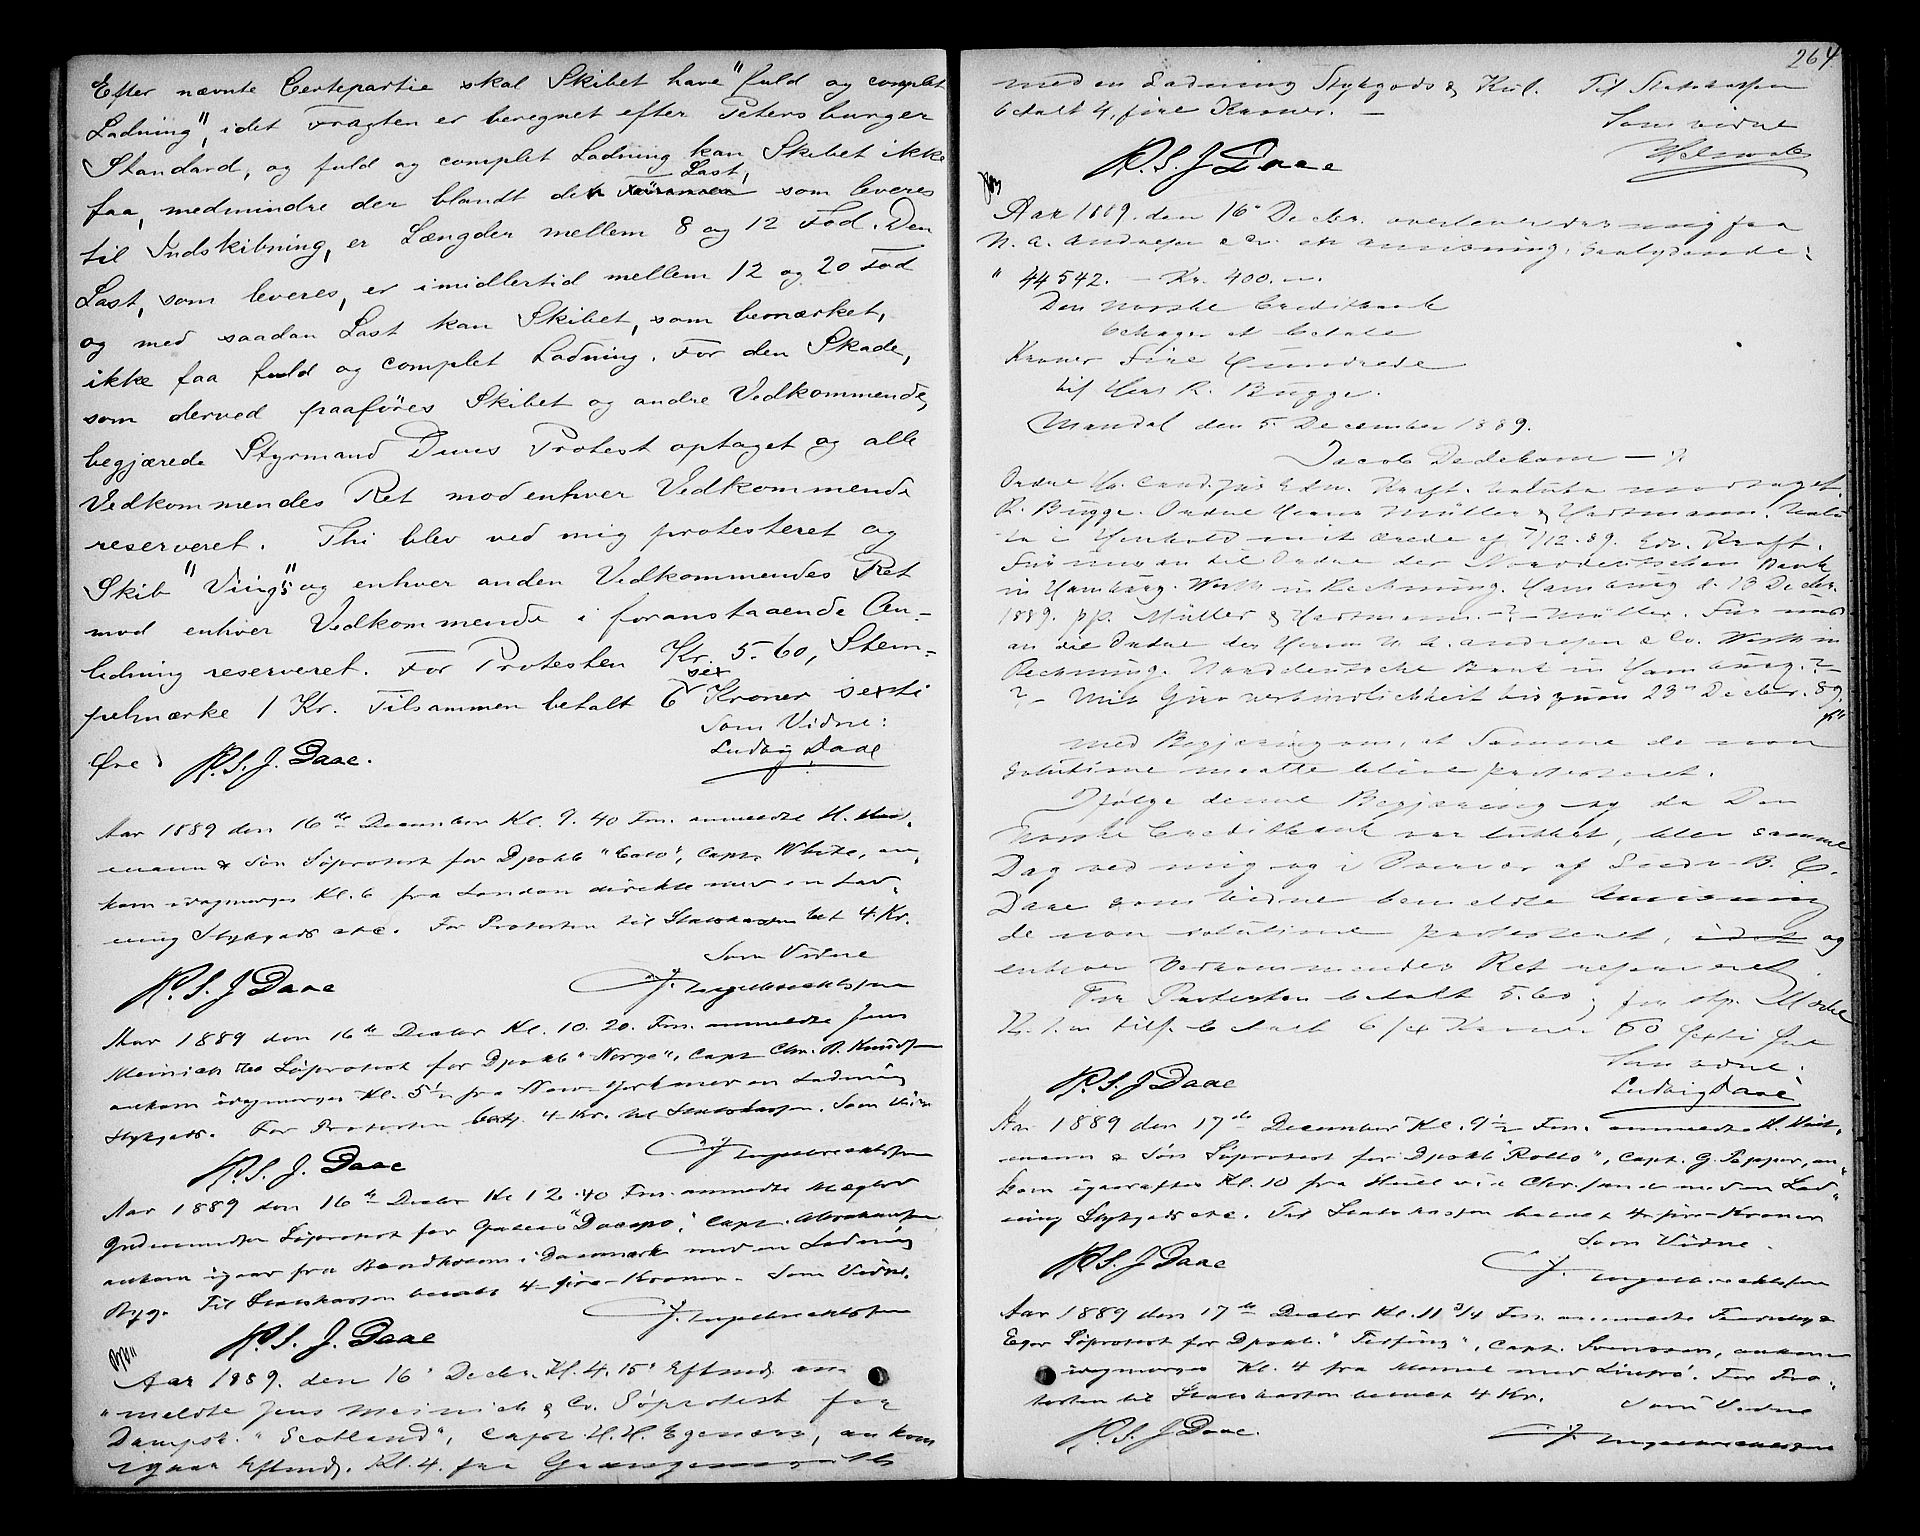 Efter nævnte Certepartie skal Skibet have "fuld og complet
Ladning", idet Fragten er beregnet efter Petersburger
Standard, og fuld og complet Ladning kan Skibet ikke
faa, medmindre der blandt den Last, som leveres
til Indskibning, er Længder mellem 8 og 12 Fod. Den
Last, som leveres, er imidlertid mellem 12 og 20 Fod
og med saadan Last kan Skibet, som bemærket,
ikke faa fuld og complet Ladning. For den Skade,
som derved paaføres Skibet og andre Vedkommende,
begjærede Styrmand Dues Protest optaget og alle
Vedkommendes Ret mod enhver Vedkommende
reserveret. Thi blev ved mig protesteret og
Skib "Vings" og enhver anden Vedkommendes Ret
mod enhver Vedkommende i foranstaaende An-
ledning reserveret. For Protesten Kr. 5.60, Stem-
pelmærke 1 Kr. Tilsammen betalt 6 sex Kroner sexti
Øre. R. S. J. Daae. Som Vidne:
Ludvig Daae
Aar 1889 den 16de December Kl. 9.40 Fm. anmeldte H. Heit-
mann & Søn Søprotest for Dpskb "Cato", Capt. White, an-
kom idagmorges Kl. 6 fra London direkte med en Lad-
ning Stykgods etc. For Protesten til Statskassen bet 4 Kr.
Som Vidne
R. S. J Daae J. Ingebrechtsen
Aar 1889 den 16de Decbr Kl. 10.20. Fm. anmeldte Jens
Meinich & Co Søprotest for Dpskb "Norge", Capt Chr. A. Knudsen
ankom idagmorges Kl. 5½ fra New-York med en Ladning
Stykgods. For Protesten bet. 4 Kr. til Statskassen. Som Vidne
R. S. J. Daae J. Ingebrechtsen
Aar 1889 den 16de Decbr Kl 12.40 Fm. anmeldte Mægler
Gudmundsen Søprotest for "Dacapo", Capt. Abrahamsen
ankom igaar fra Bandholm i Danmark med en Ladning
Byg. Til Statskassen betalt 4-fire-Kroner. Som Vidne.
J. Ingebrechtsen
R. S. J. Daae
Aar 1889. den 16' Decbr. Kl. 4.15' Eftmd. an-
meldte Jens Meinich & Co. Söprotest for
Dampsk. "Scotland", Capt. H. H. Egenæs, ankom
igaar Eftmd. Kl. 4. fra Grangemouth
264
med en Ladning Stykgods & Kul. Til Statskassen
betalt 4, fire Kroner. —
Som vidne
R. S. J Daae
Aar 1889. den 16' Decbr. overleveredes mig fra
N. A. Andresen & Co. en Anvisning, saalydende:
" 44542. — Kr. 400.—
Den norske Creditbank
behager at betale
Kroner Fire Hundrede
til Herr R. Bugge.
Mandal den 5 December 1889.
Jacob Dedekam — ?
Ordre Hr. Cand. jur Edv. Kraft. Valuta modtaget.
R. Bugge. Ordre Herrn Müller & Hartmann. Valu-
ta i Henhold mit ærede af 7/12.89. Edv. Kraft.
Für mich an til Ordre der Norddeutschen Bank
in Hamburg. Werth in Rechnung. Hamburg d. 13 Decbr.
1889. pp. Müller & Hartmann. —?— Müller. Für uns
an die Ordre der Herrn N. A. Andresen & Co. Werth in
Rechnung. Norddeutsche Bank in Hamburg. ?—
?— Mit Giro verbindlichkeit bis zum 23n Decbr. 89.
med Begjæring om, at Samme de non
solutione maatte blive protesteret.
Ifølge denne Begjæring og da Den
Norske Creditbank var lukket, blev samme
Dag ved mig og i Overvær af Studr. B. C.
Daae som Vidne bemeldte Anvisning
de non solutione protesteret, og
enhver Vedkommendes Ret reserveret.
For Protesten betalt 5.60, for stp. Mærke
K. 1. — tils. betalt 6 sex Kroner 60 sexti Øre
Som vidne.
R. S. J Daae Ludvig Daae
Aar 1889 den 17de December Kl. 9½ Fm. anmeldte H. Heit-
mann & Søn Søprotest for Dpskb "Rollo", Capt. G. Pepper, an-
kom igaaraftes Kl. 10 fra Hull via Chr.sand med en Lad-
ning Stykgods etc. Til Statskassen betalt 4-fire-Kroner
Som Vidne.
R. S. J Daae J. Ingebrechtsen
Aar 1889 den 17de Decbr Kl. 11 3/4 Fm. anmeldte Fearnley &
Eger Søprotest for Dpskb. "Tirfing", Capt. Svensson, ankom
idagmorges Kl. 4 fra Memel med Linfrø. For Pro-
testen til Statskassen betalt 4 Kr.
Som Vidne
R. S. J Daae. J. Ingebrechtsen